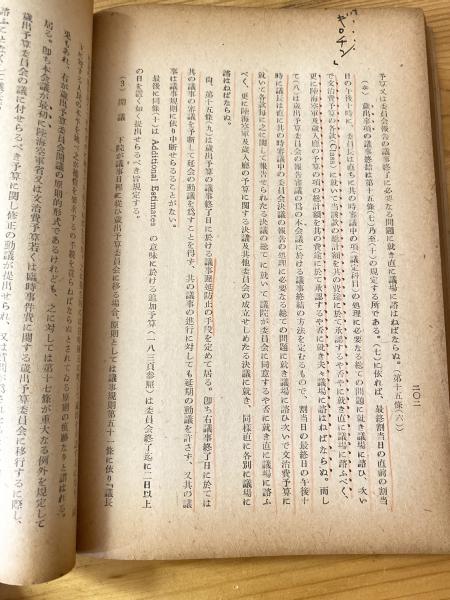 ギロチン
二〇二
予算又は委員会報告の議事終了に必要なる問題に就き直に議場に諮はねばならぬ。(第十五條(六))
歳出各項の議事終結は第十五條(七)乃至(十)の規定する所である。(七)に依れば、最終割当日の直前の割当
日の午後十時に、委員長は直ちに其の時審議中の項(議定科目)の処理に必要なる総ての問題に就き議場に諮ひ、次い
で文治費予算の各款(Class)に就いて当該款の総計額を其の費途に於て承認するや否やに就き直に議場に諮ふべく、
更に陸海空軍及歳入廳の予算の項の総計額を其の費途に於て承認するや否やに就き夫々議場に諮はねばならぬ。而し
て(八)は歳出予算委員会報告審議の為の本会議に於ける議事終結の方法を定むるもので、割当日の最終日の午後十
時に議長は直に其の時審議中の委員会決議の報告の処理に必要なる総ての問題に就き議場に諮ひ次いで文治費予算に
就いて各款毎に之に関して報告せられたる決議の総てに就いて議院が委員会に同意するや否やに就き直に議場に諮ふ
べく、更に陸海空軍及歳入廳の予算に関する決議及其他委員会の成立せしめたる決議に就き、同様直に各別に議場に
諮はねばならぬ。
尚、第十五條(九)は歳出予算の議事終了日に於ける議事遅延防止の手段を定めて居る。即ち右議事終了日に於ては
其の議事の審議を予断して延会の動議を為すことを得ず、其の議事の進行に対しても延期の動議を許さず、又其の議
事は議事規則に依り中断せらるることがない。
最後に同條(十)は Additional Estimates の意味に於ける追加予算(一八三頁参照)は委員会終了迄に二日以上
の日を置くなく提出せらるべき旨規定する。
(3) 開議 下院が議事日程に従ひ歳出予算委員会に移る場合、原則としては議事規則第五十一條に依り『議長
居る。即ち本会議が最初に陸海空軍省又は文治費予算若くは臨時軍事費に関する歳出予算委員会に移行するに際し、
歳出予算委員会の議に付せらるべき予算に関し修正の動議が提出せられ、